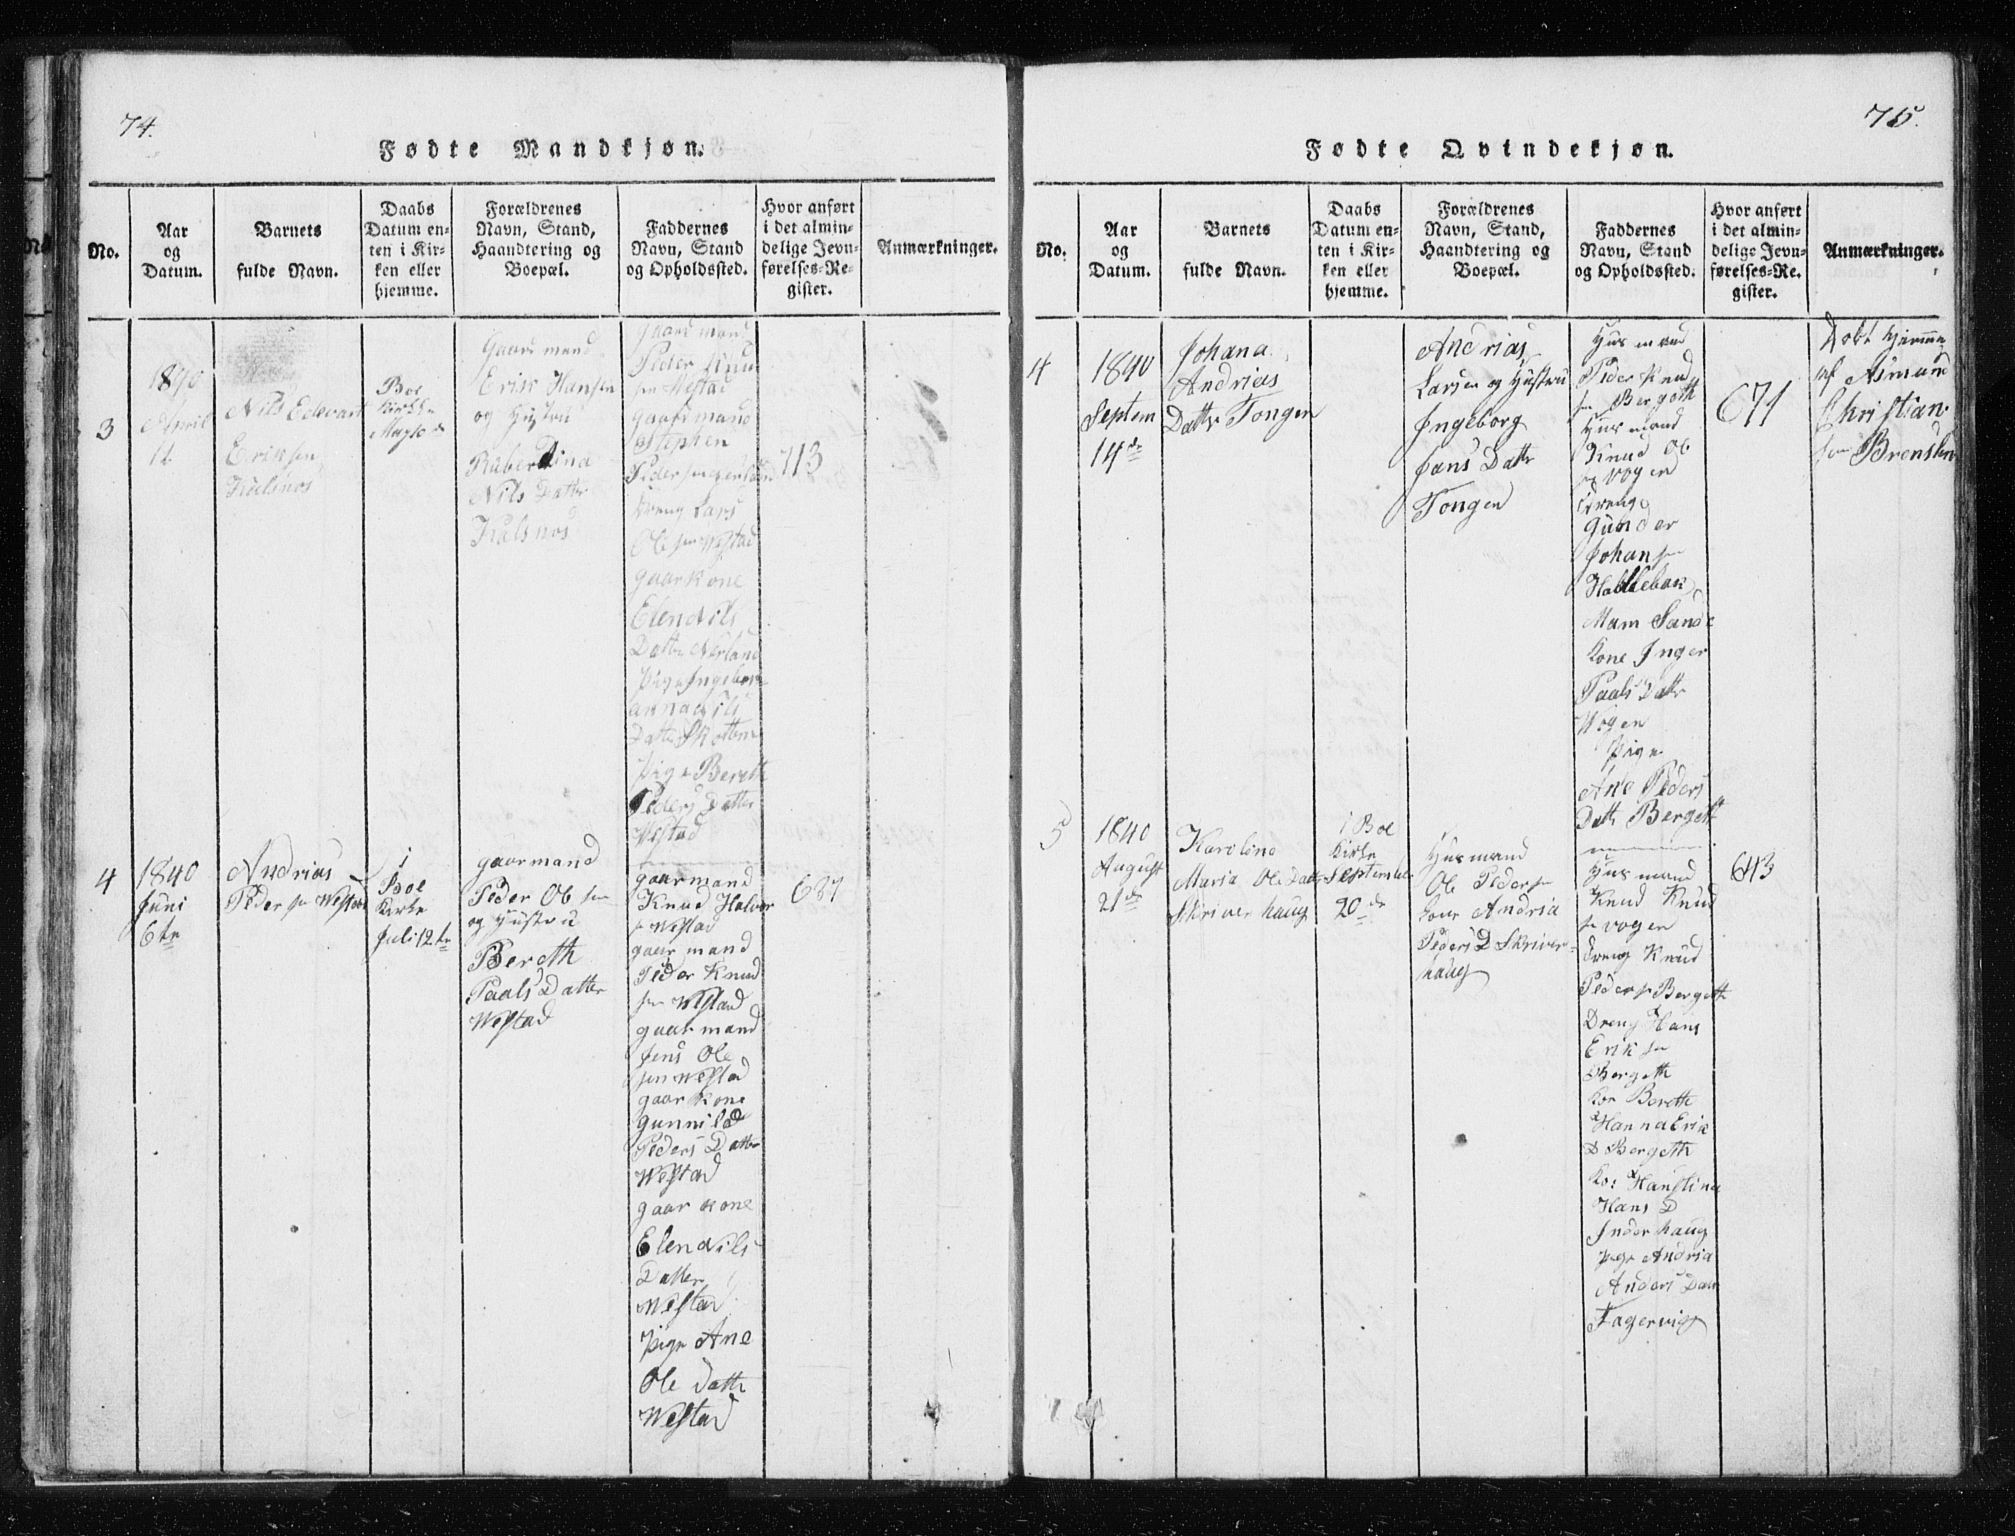 74.
Fødte Mandkjøn.
No.
Aar
og
Datum.
Barnets
fulde Navn.
Daabs
Datum en-
ten i Kir-
ken eller
hjemme.
Forældrenes
Navn, Stand,
Haandtering og
Boepæl.
Faddernes
Navn, Stand
og Opholdssted.
Hvor anført
i det almin-
delige Jevn-
førelses-Re-
gister.
Anmærkninger.
3
1840
April
Nils Edevart
Eriksen
Boe
Kirke
Gaardmand
Erik Hansen
og Hustru
Nils Datter
Kalsnos
gaardmand
Peder Knud
sen Westad
gaardmand
Stephen
Dreng Lars
Ole sen Westad
gaarkone
Elen Nils
Datter
Pige Ingebor
anna Nils
Datter
Pige Bereth
Peders Datter
Westad
713
4
1840
Juni
6te
Andrias
Peder sen Westad
i
Boe
Kirke
Juli 12te
gaarmand
Peder Ole sen
og Hustru
Bereth
Paals Datter
Westad
gaarmand
Knud Halvor
sen Westad
gaarmand
Peder Knud
sen Westad
gaarmand
Jens Ole
sen Westad
gaarkone
Gunnild
Peders Datter
Westad
gaarkone
Elen Nils
Datter
Westad
Pige Ane
Ole Datter
Westad
687
75.
Fødte Qvindekjøn.
No.
Aar
og
Datum.
Barnets
fulde Navn.
Daabs
Datum en-
ten i Kir-
ken eller
hjemme.
Forældrenes
Navn, Stand,
Haandtering og
Boepæl.
Faddernes
Navn, Stand
og Opholdssted.
Hvor anført
i det almin-
delige Jevn-
førelses-Re-
gister.
Anmærkninger.
4
1840
Septem
14de
Johana
Andrias
Datter Tongen
Andrias
Larsen og Hustru
Ingeborg
Jans Datter
Tongen
Husmand
Peder Knud
sen Bergeth
Husmand
Knud Ole
sen Vogen
Drenge
Gunder
Johan sen
Kone Inger
Paals Datter
Vogen
Pige
Ane Peders
Datter Bergeth
671
Døbt hjemme
af Asmund
Christian
sen
5
1840
August
21de
Karoline
Maria Ole Datter
Skriverhaug
i Boe
Kirke
September
20de
Husmand
Ole Peder sen
Kone Andria
Peders D Skriver-
haug
Husmand
Knud Knud
sen Vogen
Dreng Knud
Peder sen Bergeth
Dreng Hans
Erik sen
Bergeth
Kone Bereth
Hanna Erik
D Bergeth
Kone Hanstina
Hans D
Inderhaug
Pige Andria
Anders Datter
Fagervig
643